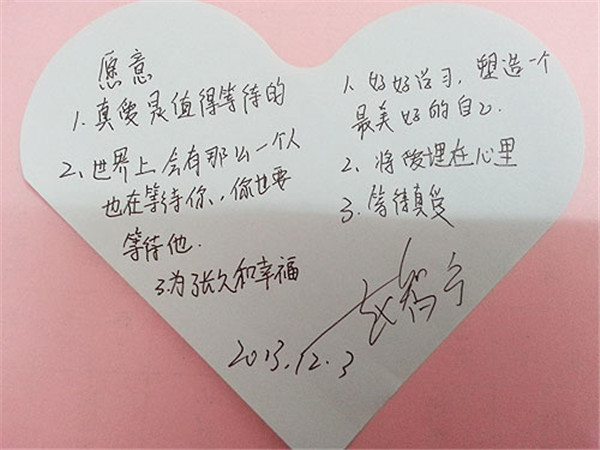 愿意
1. 真爱是值得等待的
2、世界上会有那么一个人
也在等待你,,你也要
等待他.
3.为了长久和幸福
1. 好好学习,塑造一个
最美好的自己.
2、将爱埋在心里
3. 等待真爱
2013.12.3